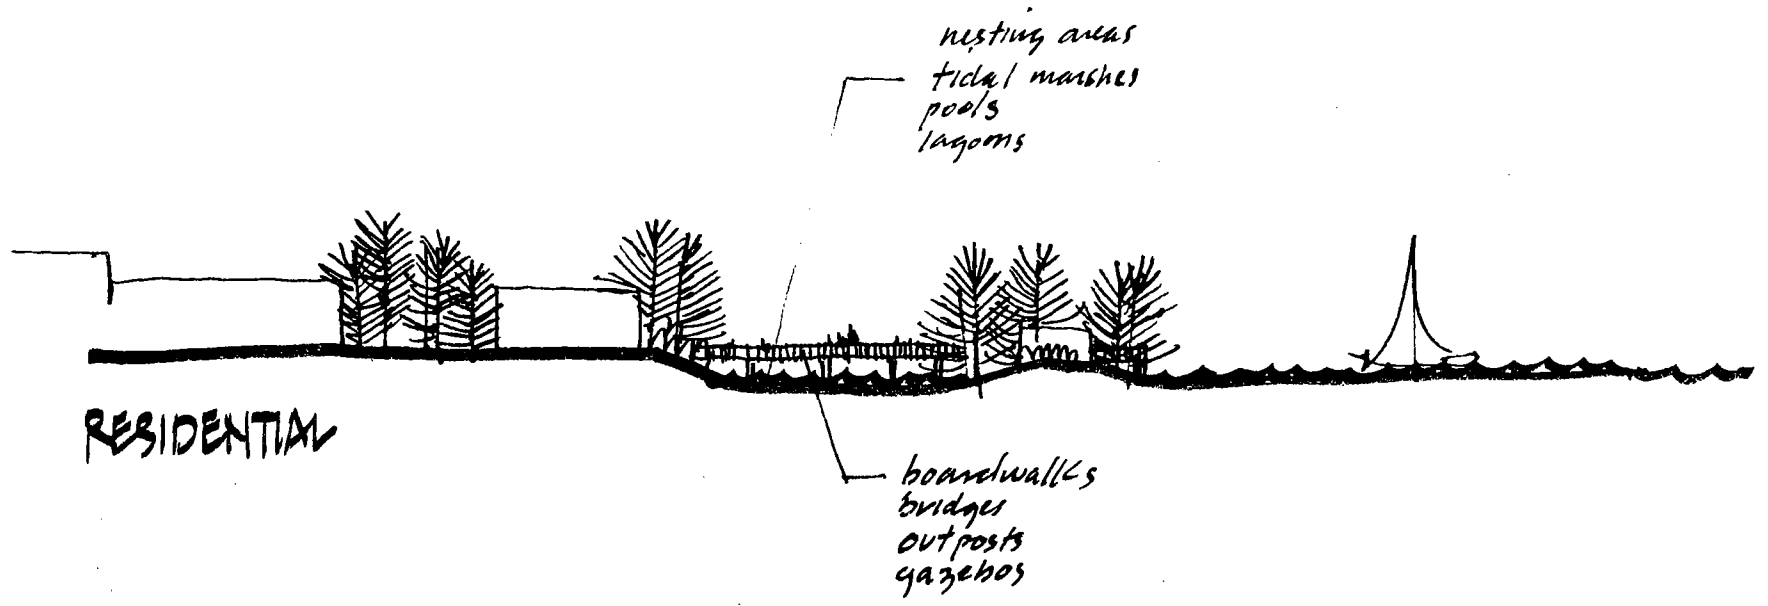 nesting areas
tidal marshes
pools
lagoons
RESIDENTIAL
boardwalks
bridges
outposts
gazebos